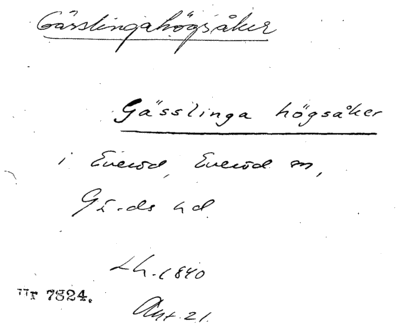 Gässlingahögsåker
Gässlinga högsåker
i Everöd, Everöd sn,
Gä-ds hd.
Lh. 1840
Akt. 21.
Nr 7324.